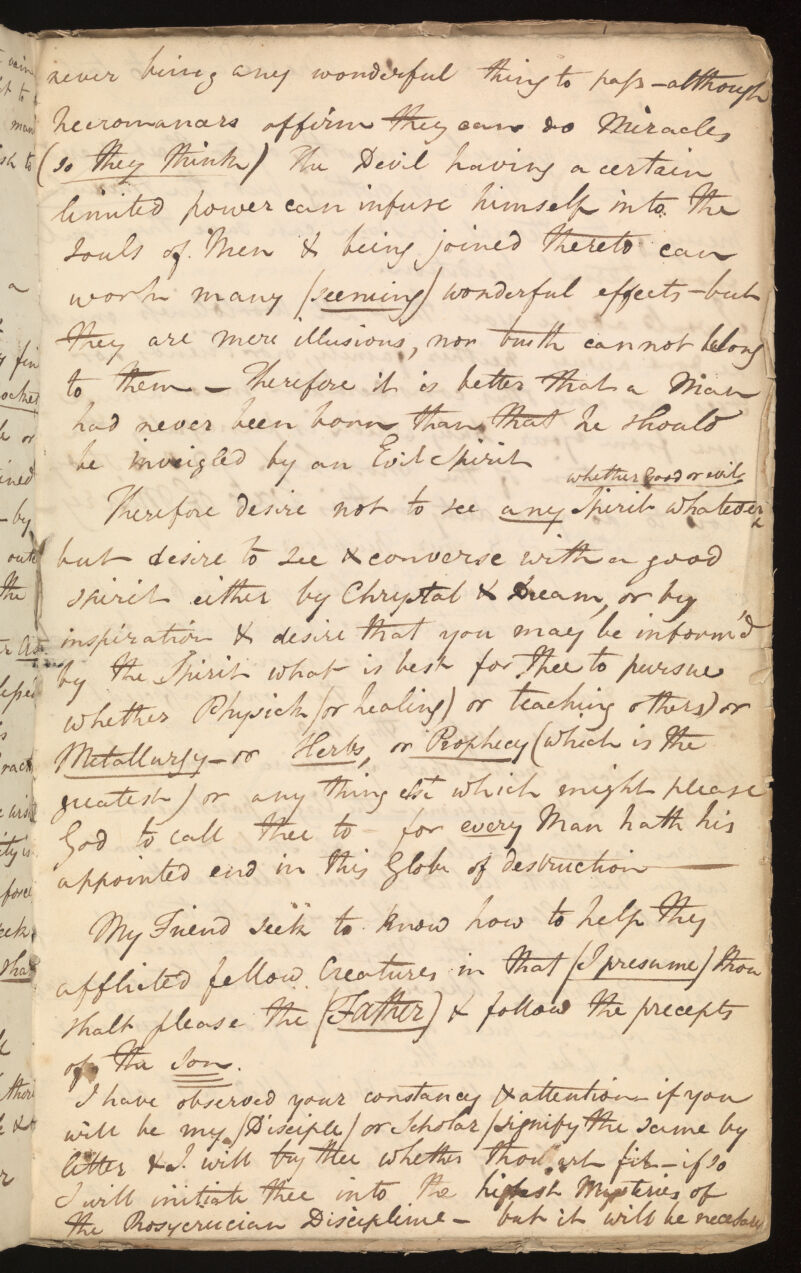 never bring any wonderful thing to pass – although
necromancers affirm they can do Miracles
(so they think) The Devil having a certain
limited power can infuse himself into the
souls of Men & being joined thereto can
work many (seeming) wonderful effects – but
they are mere illusions, nor truth cannot belong
to them – Therefore it is better that a Man
had never been born than that he should
be inveigled by an Evil Spirit
whether good or evil
Therefore desire not to see any Spirit whatever
but desire to see & converse with a good
spirit either by Chrystal & Dream, or by
inspiration & desire that you may be inform'd
by the Spirit what is best for thee to pursue
whether Physick (or healing) or teaching others) or
Metallurgy – or Herbs, or Prophecy (which is the
greatest) or any thing else which might please
God to call thee to – for every Man hath his
appointed end in this Globe of destruction –
My Friend seek to know how to help thy
afflicted fellow Creatures in that (I presume) thou
shalt please the (Father) & follow the precepts
of the Son.
I have observed your constancy & attention – if you
will be my (Disciple) or Scholar / signify the same by
letter & I will try thee whether thou art fit – if so
I will initiate thee into the highest Mysteries of
the Rosycrucian Discipline – but it will be necessary